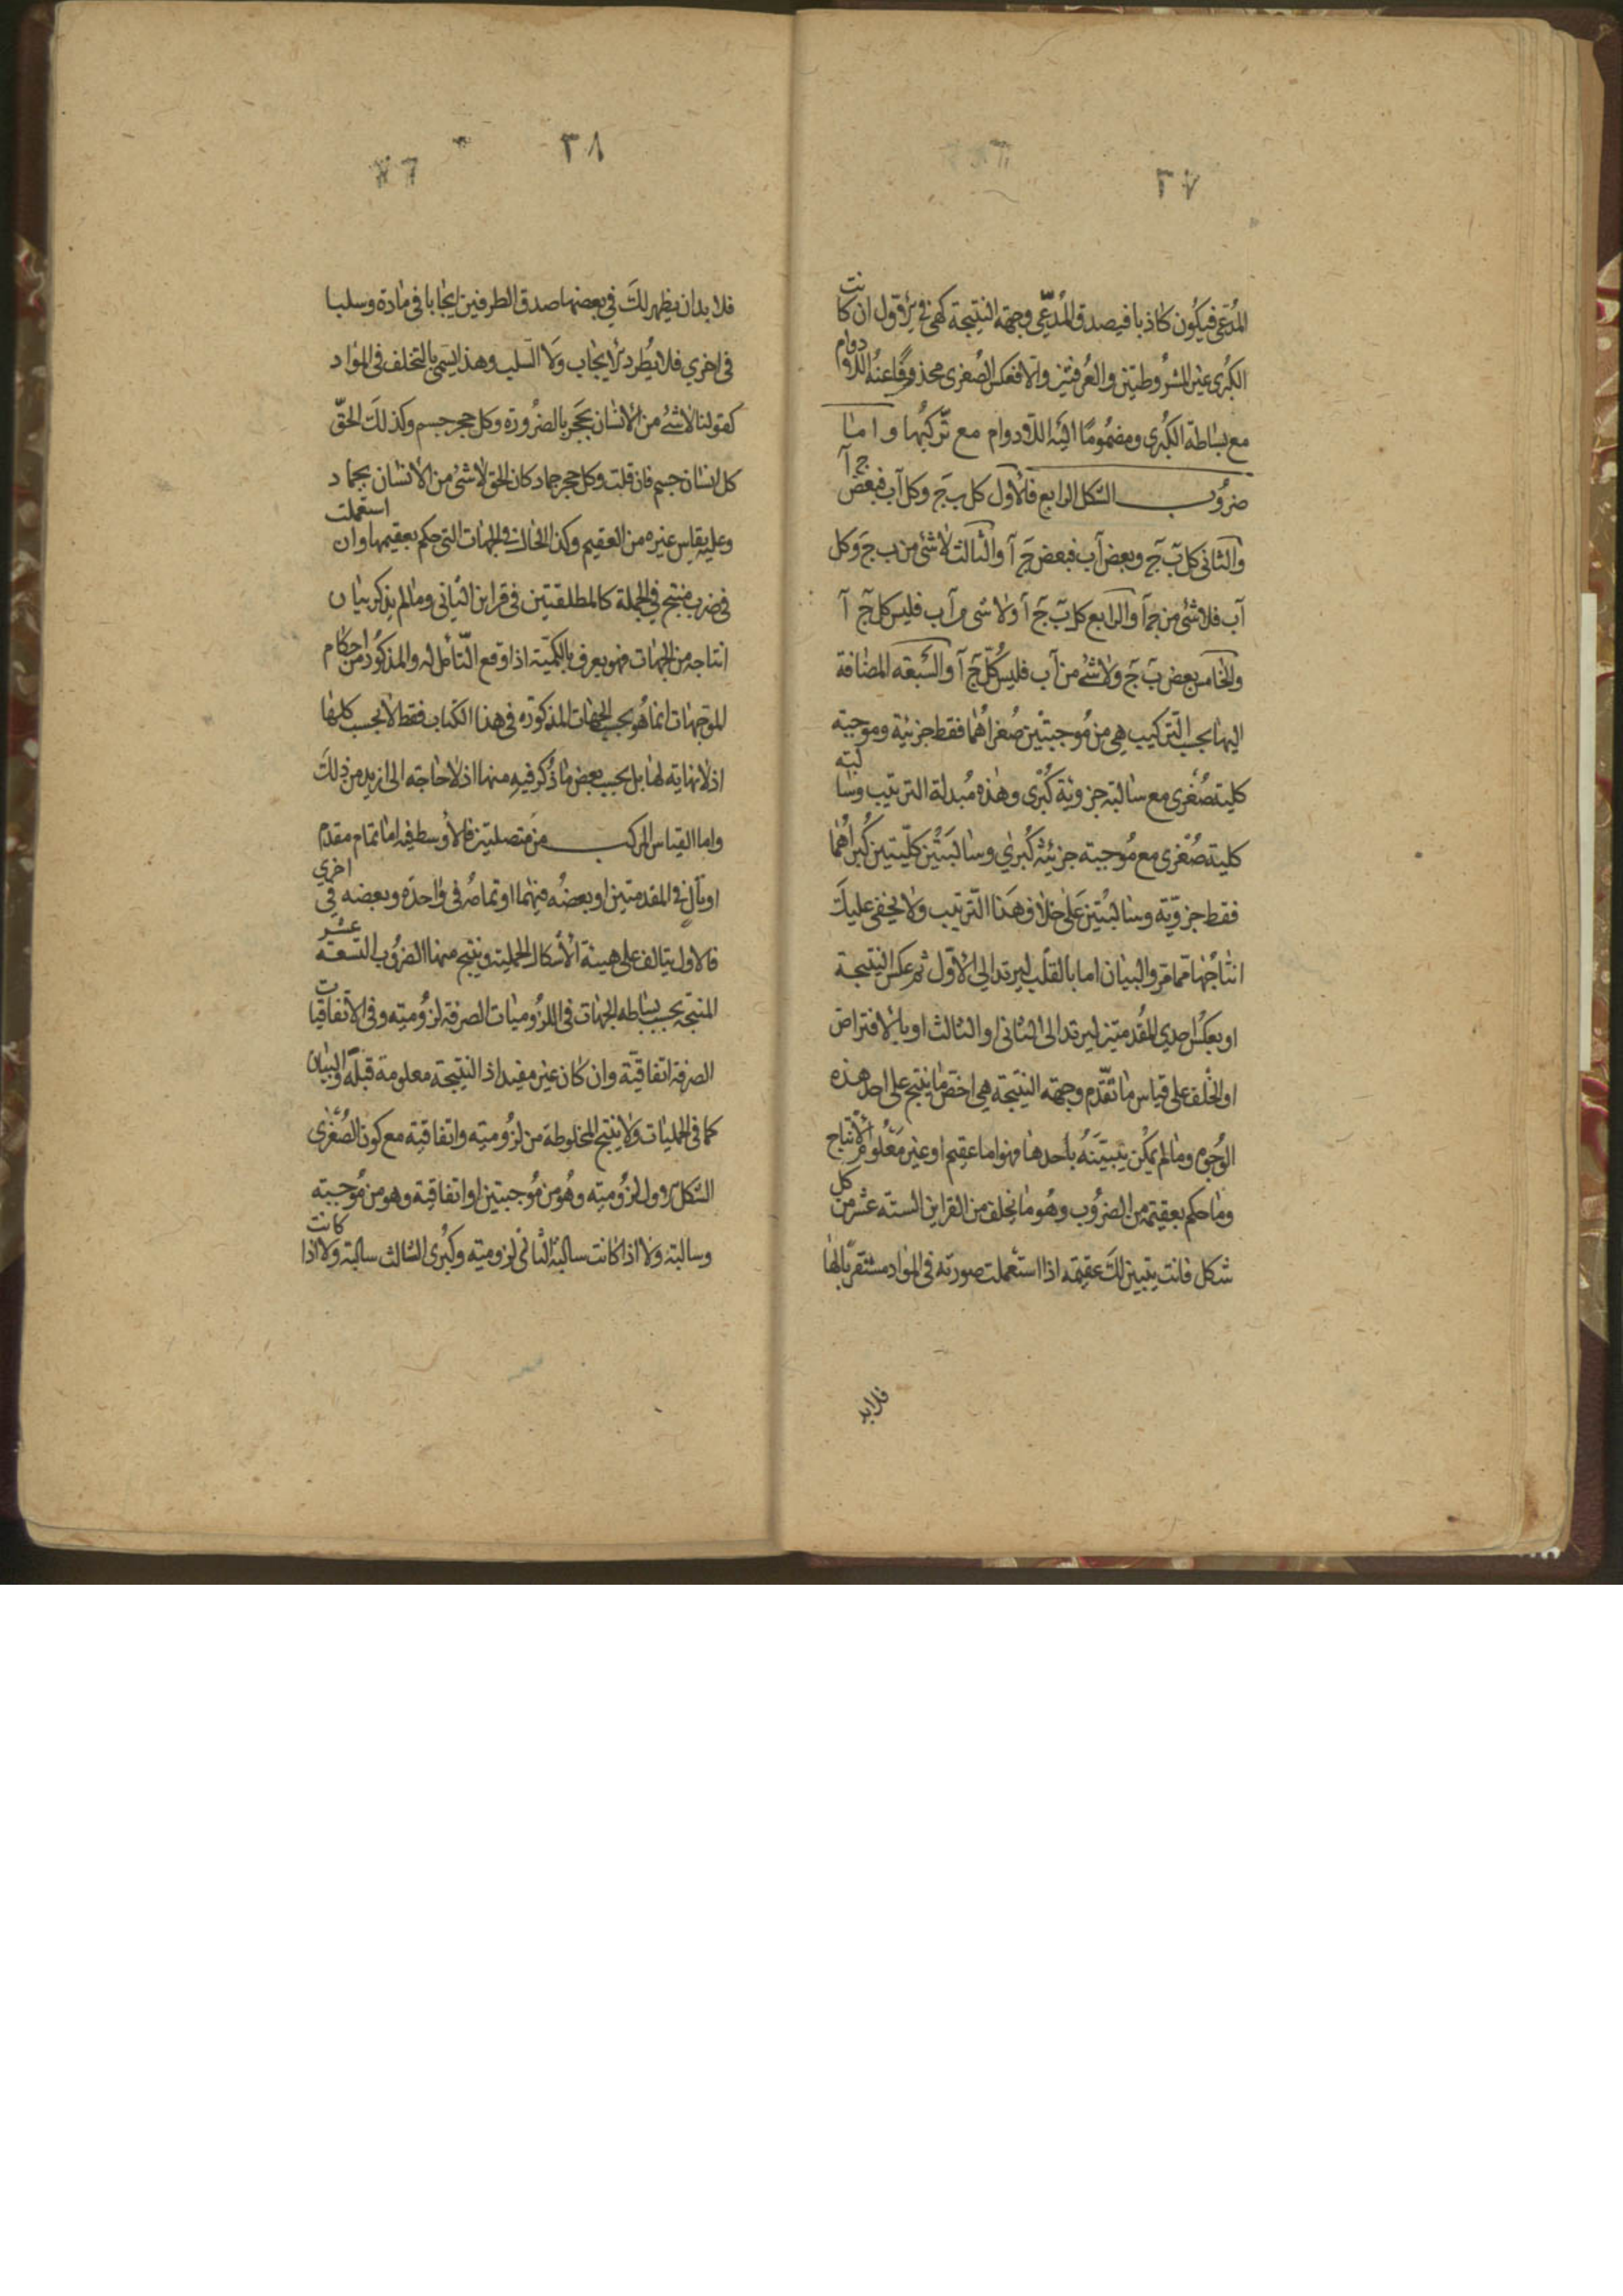 ٣٧
المدعى فيكون كاذبا فيصدق المدعى وجهة النتيجة كهى فى الاول ان كانت
الكبرى غير المشروطتين والعرفتين والا فعكس الصغرى محذوفا عنه اللادوام
مع بساطة الكبرى ومضموما اليه اللادوام مع تركبها واما
ضروب الشكل الرابع فالاول كل ب ج وكل آ ب فبعض ج آ
والثانى كل ب ج وبعض آ ب فبعض ج آ والثالث لاشئ من ب ج وكل
آ ب فلا شئ من ج آ والرابع كل ب ج آ ولا شى من آ ب فليس كل ج آ
والخامس بعض ب ج ولا شئ من آ ب فليس كل ج آ والسبعه المضافة
اليها بحسب التركيب هى من موجبتين صغراهما فقط جزئية وموجبة
كلية صغرى مع سالبة جزوية كبرى وهذه مبدلة الترتيب وسالبة
كلية صغرى مع موجبة جزئية كبرى وسالبتين كليتين كبراهما
فقط جزوية وسالبتين على خلاف هذا الترتيب ولا يخفى عليك
انتاجها مما مر والبيان اما بالقلب ليرتد الى الاول ثم عكس النتيجة
او بعكس احدى المقدمتين ليرتد الى الثانى او الثالث او بالافتراض
او الخلف على قياس ما تقدم وجهة النتيجة هى اخص ما ينتج على احد هذه
الوجوه وما لم يمكن تبيينه باحدها فهو اما عقيم او غير معلوم الانتاج
وما حكم بعقيمه من الضروب وهو ما تخلف من القراين الستة عشر من كل
شكل فانت يتبين لك عقيمه اذا استعملت صورته فى المواد مستقريا لها
فلابد
٣٨
فلا بد ان يظهر لك فى بعضها صدق الطرفين ايجابا فى مادة وسلبا
فى اخرى فلا يطرد الايجاب ولا السلب وهذا يسمى بالتخلف فى المواد
كقولنا لاشئ من الانسان بحجر بالضرورة وكل حجر جسم وكذلك الحق
كل انسان جسم فان قلت وكل حجر جماد كان الحق لاشئ من الانسان بجماد
وعليه يقاس غيره من العقيم وكذا الحال فى الجهات التى حكم بعقيمها وان استعملت
فى ضرب منتج فى الجملة كالمطلقتين فى قراين الثانى وما لم يذكر بيان
انتاجه من الجهات فهو يعرف بالكمية اذا وقع التأمل له والمذكور من احكام
الموجهات انما هو بحسب الجهات المذكورة فى هذا الكتاب فقط لا بحسب كلها
اذ لا نهاية لها بل بحسب بعض ما ذكر فيه منها اذ لا حاجة الى ازيد من ذلك
واما القياس المركب من متصلتين فالاوسط فيه اما تمام مقدم
او تال فى المقدمتين او بعضه فيهما او تمامه فى واحدة وبعضه فى اخرى
فالاول يتالف على هيئة الاشكال الحملية وينتج منها الضروب التسعة عشر
المنتجة بحسب بساطه الجهات فى اللزوميات الصرفة لزومية وفى الاتفاقيات
الصرفة اتفاقية وان كان غير مفيد اذ النتيجة معلومة قبله والبيان
كما فى الحمليات ولا ينتج المخلوطة من لزومية واتفاقية مع كون الصغرى
الشكل الاول لزومية وهو من موجبتين او اتفاقية وهو من موجبة
وسالبة ولا اذا كانت سالبة الثانى لزومية وكبرى الثالث سالبة ولا اذا كانت